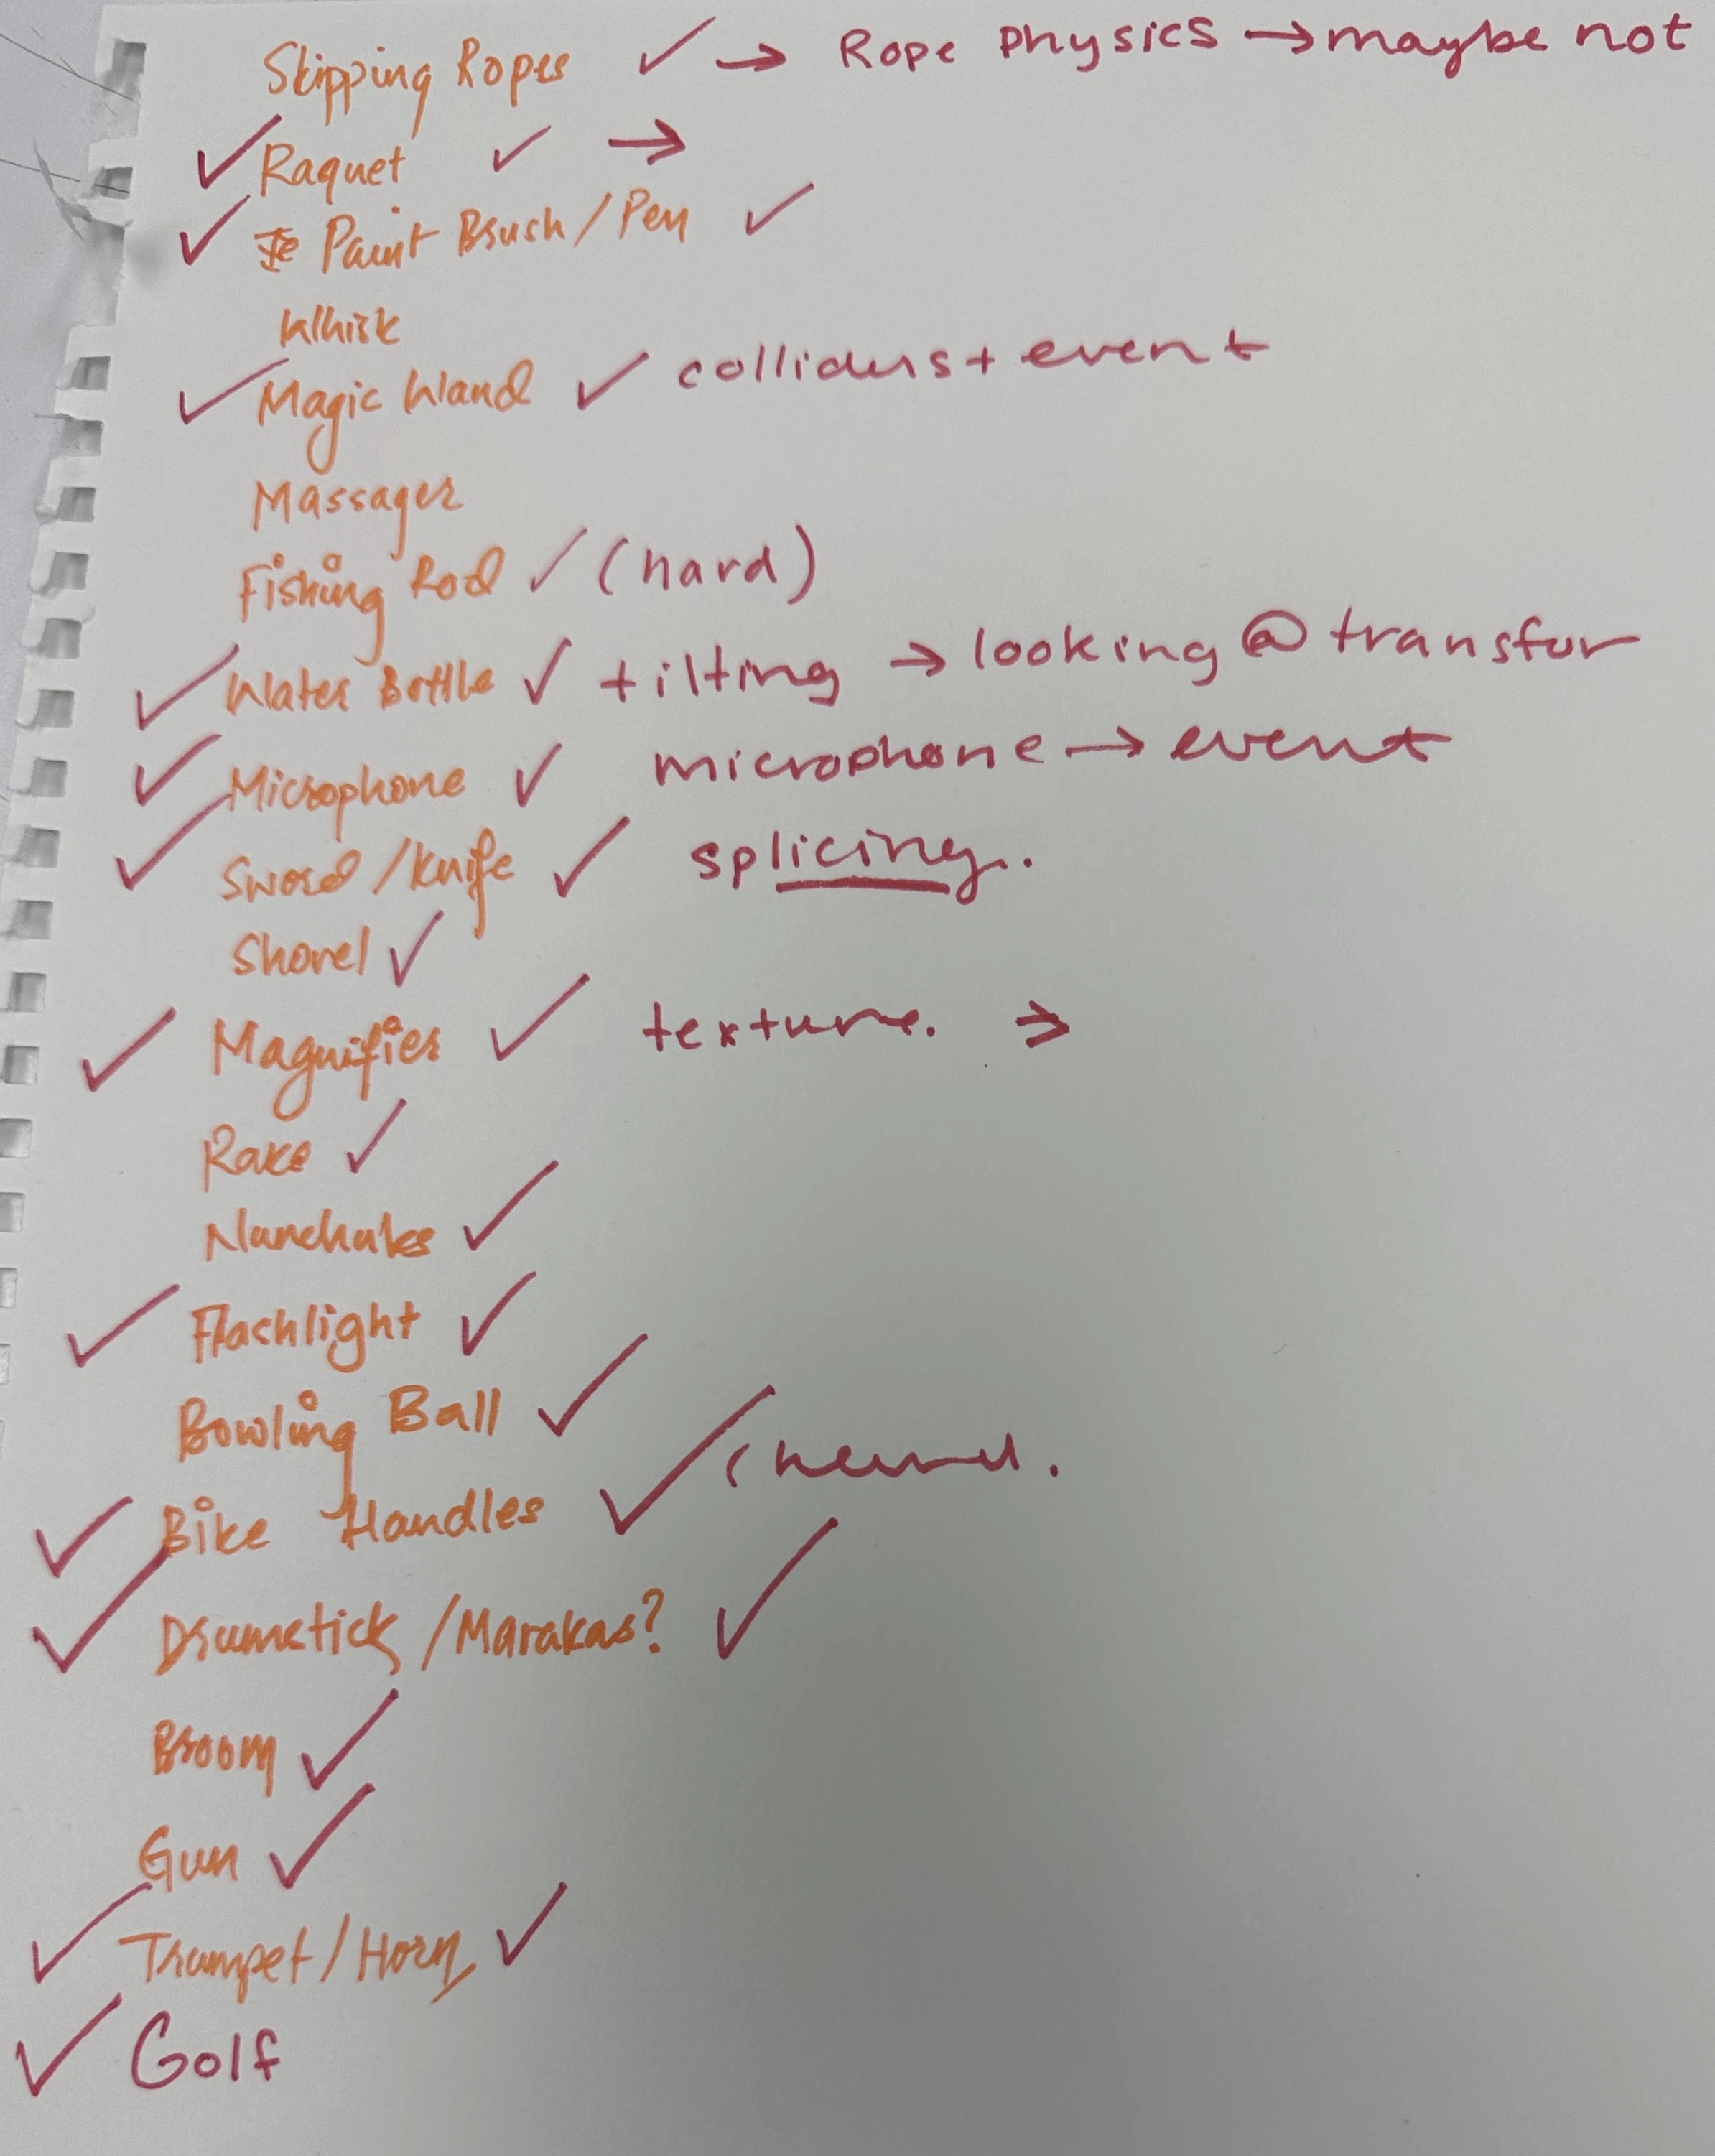 Skipping Ropes ✓ → Rope Physics → maybe not
✓ Raquet ✓ →
✓ Paint Brush / Pen ✓
Whisk
✓ Magic Wand ✓ colliders + event
Massager
Fishing Rod ✓ (hard)
✓ Water Bottle ✓ tilting → looking @ transfor
✓ Microphone ✓ microphone → event
✓ Sword / Knife ✓ splicing.
Shovel ✓
✓ Magnifier ✓ texture. →
Rake ✓
Nunchuks ✓
✓ Flashlight ✓
Bowling Ball ✓
✓ Bike Handles ✓
✓ Drumstick / Marakas? ✓
Broom ✓
Gun ✓
✓ Trumpet / Horn ✓
✓ Golf